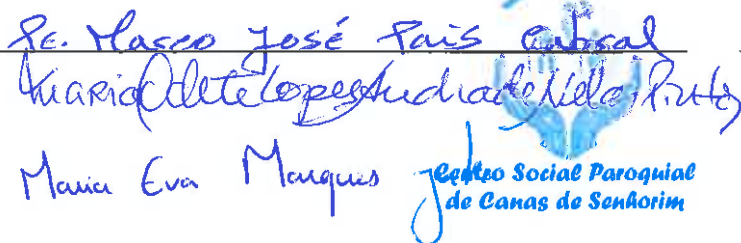 Pe. Marco José Pais Cabral
Maria Odete Lopes Andrade Nelas Pinto
Maria Eva Marques
Centro Social Paroquial
de Canas de Senhorim